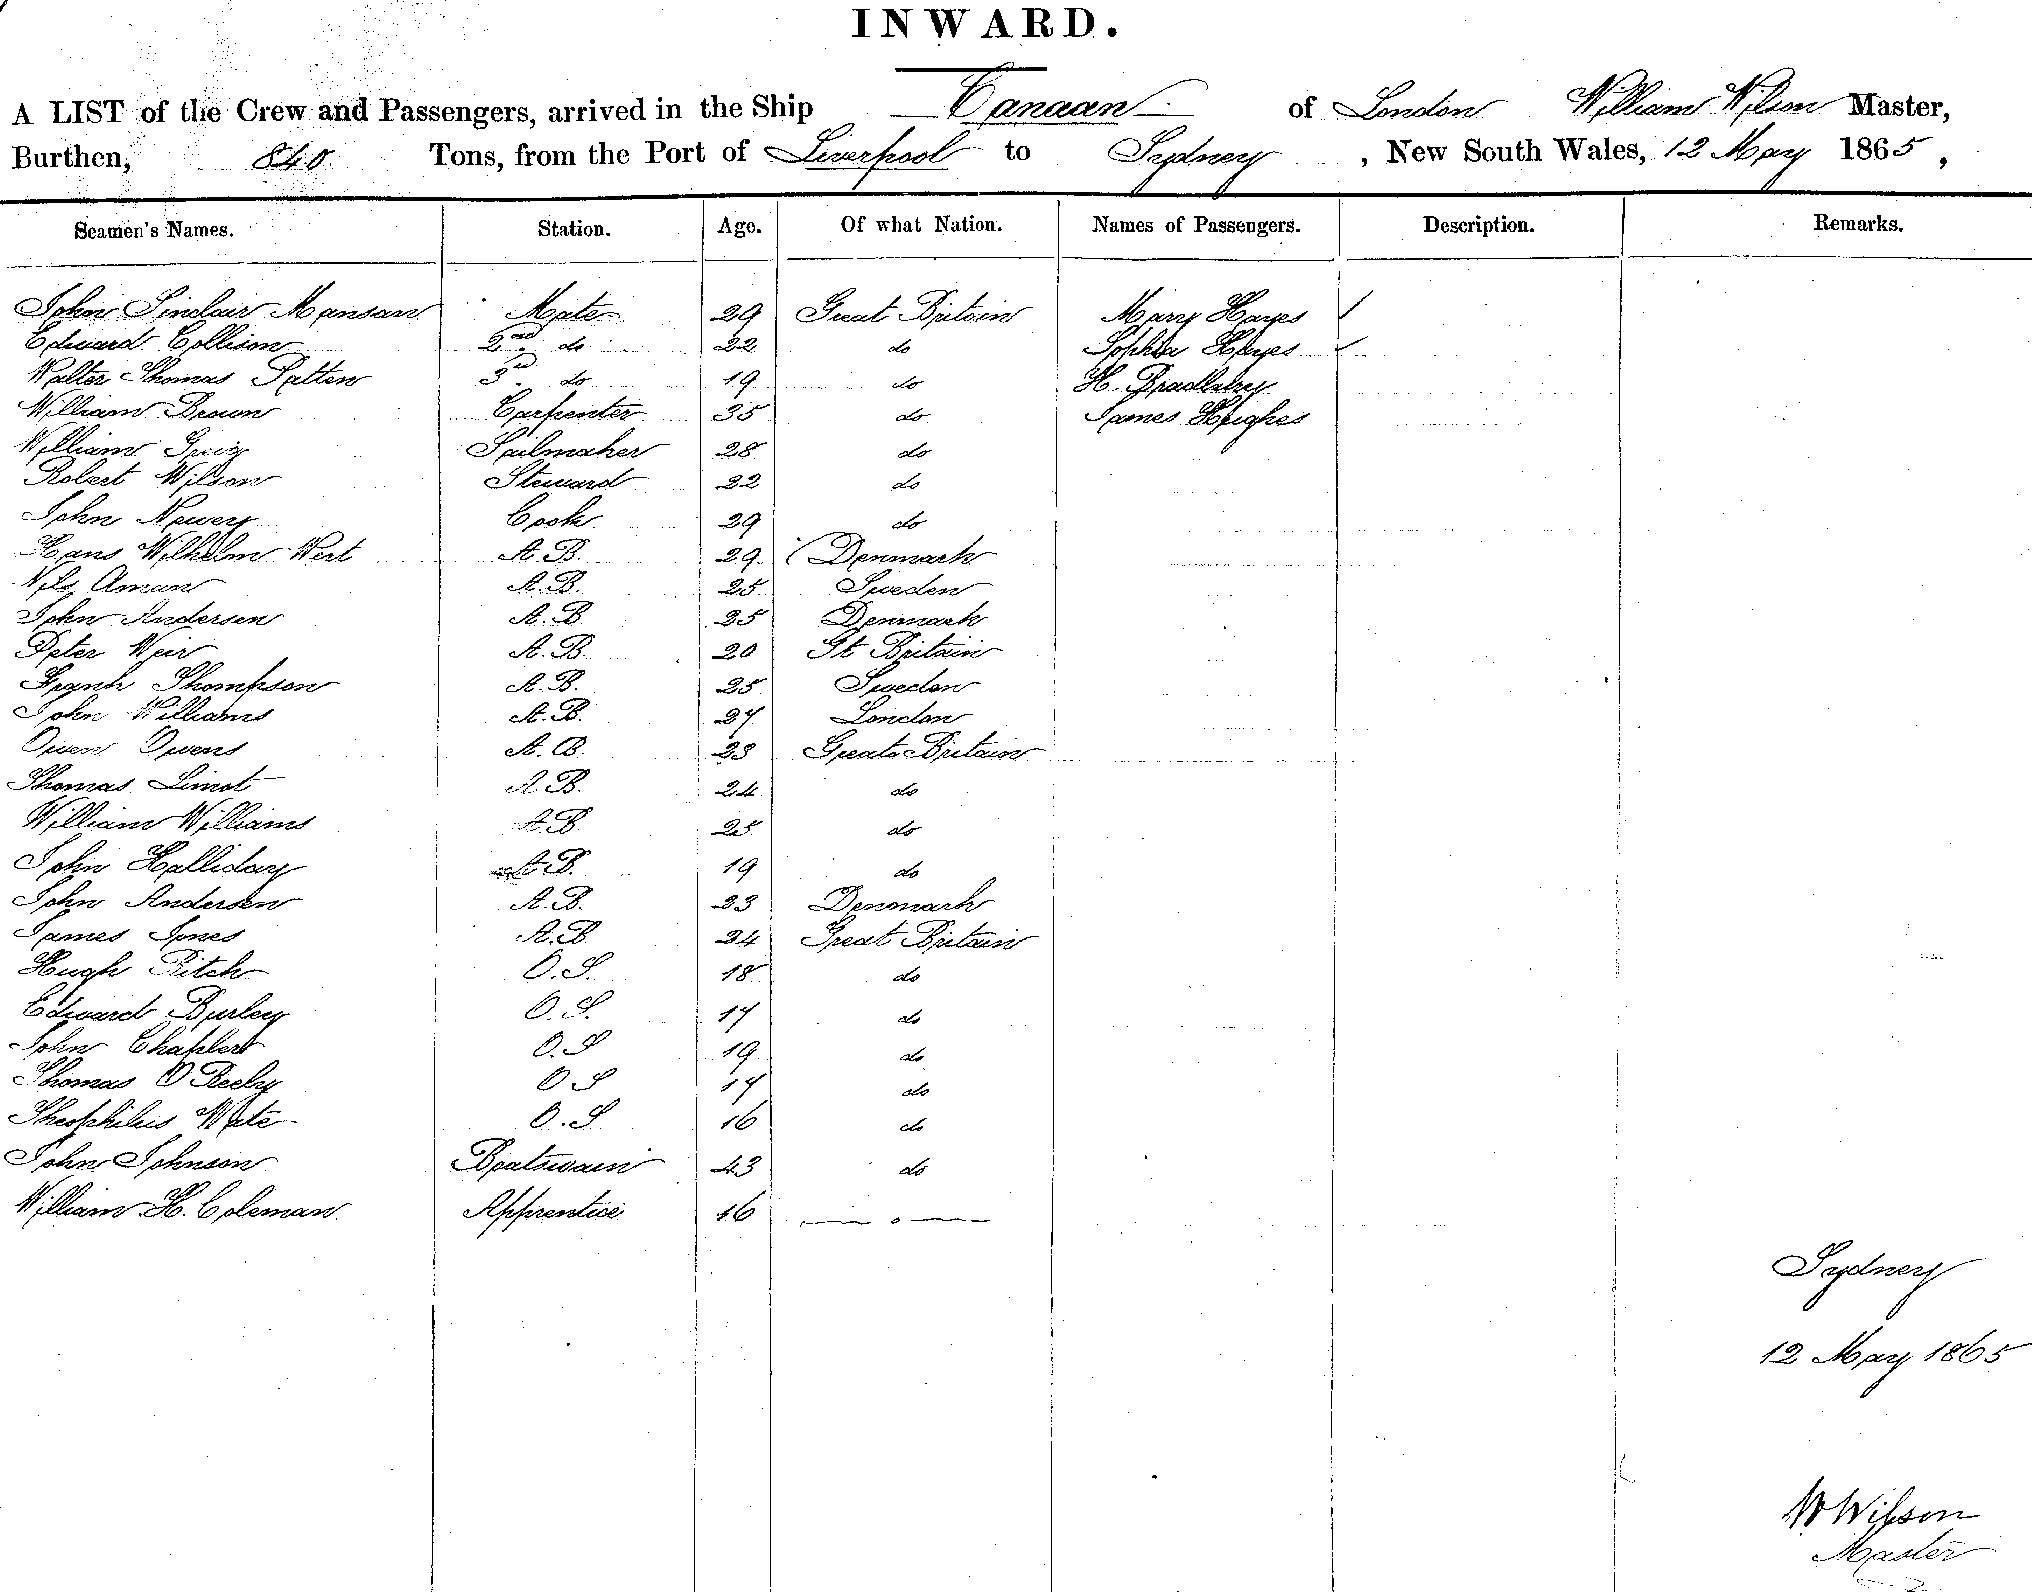 INWARD.
A LIST of the Crew and Passengers, arrived in the Ship Canaan of London William Wilson Master,
Burthen, 840 Tons, from the Port of Liverpool to Sydney, New South Wales, 12 May 1865,
Seamen's Names. Station. Age. Of what Nation. Names of Passengers. Description. Remarks.
John Sinclair Mansan Mate 29 Great Britain Mary Hayes ✓
Edward Collison 2nd do 22 do Sophia Hayes ✓
Walter Thomas Patten 3rd do 19 do H. Bradbury
William Brown Carpenter 35 do James Hughes
William Sailmaker 28 do
Robert Wilson Steward 22 do
John Newery Cook 29 do
Hans Wilhelm Wert A.B. 29 Denmark
Nils Aman A.B. 25 Sweden
John Andersen A.B. 25 Denmark
Peter Weir A.B. 20 Gt Britain
Frank Thompson A.B. 25 Sweden
John Williams A.B. 27 London
Owen Owens A.B. 23 Great Britain
Thomas Limot A.B. 24 do
William Williams A.B. 25 do
John Halliday A.B. 19 do
John Andersen A.B. 23 Denmark
James Jones A.B. 24 Great Britain
Hugh Pitch O.S. 18 do
Edward Burley O.S. 17 do
John O.S 19 do
Thomas O Reely O S 17 do
Theophilis Wate O.S 16 do
John Johnson Boatswain 43 do
William H. Coleman Apprentice 16 — o —
Sydney
12 May 1865
W Wilson
Master